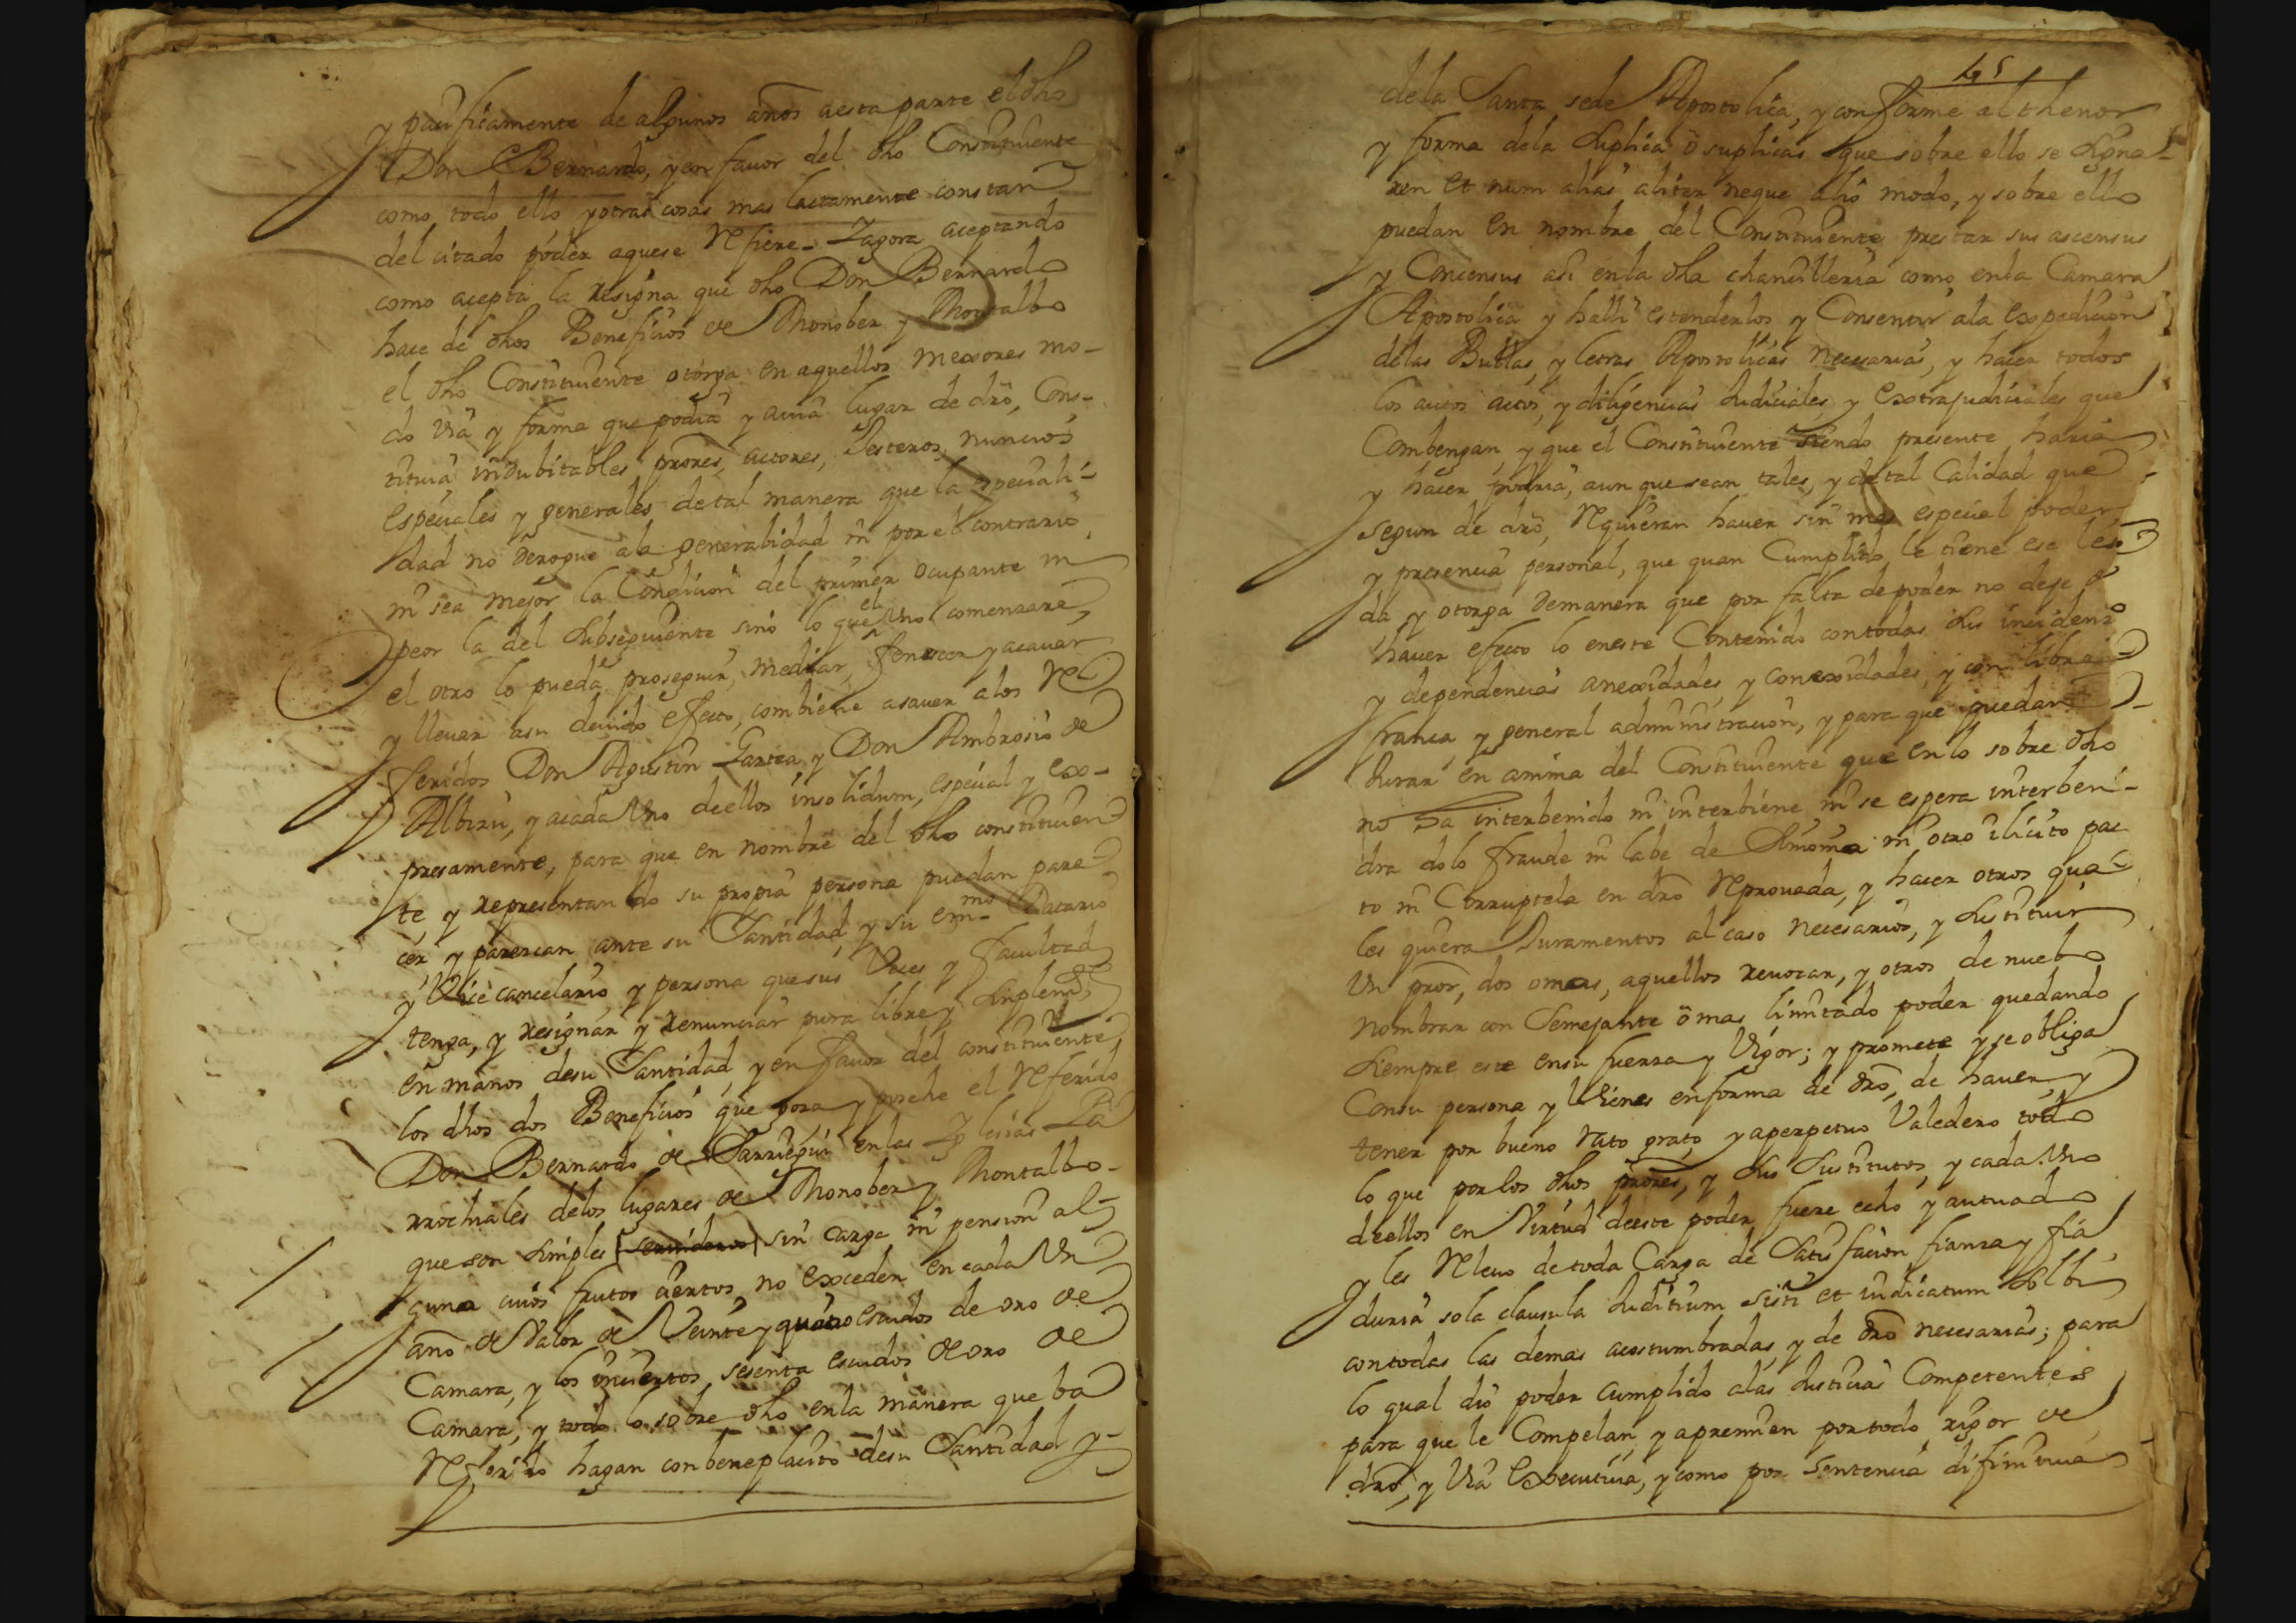 y pacificamente de algunos años aesta parte el dho
Don Bernardo, y con favor del dho Constituiente
como todo ello y otras cosas mas lactamente constan
del citado poder aquese Refiere. Iagora aceptando
como acepta la resigna que dho Don Bernardo
hace de dhos Beneficios de Monober y Montalbo
el dho Constituiente otorga en aquellos mexores mo-
do via y forma que podia y avia lugar de dro, Cons-
tituia indubitables prores, actores, Jesteros, nuncios
especiales y generales de tal manera que la especiali-
dad no derogue ala generalidad ni por el contrario
ni sea mejor la Condicion del primer ocupante ni
peor la del subseguiente sino lo que el Uno comenzare,
el otro lo pueda proseguir, mediar, fenecer y acavar
y llevar asu devido efecto, combiene asaver a los Re
feridos Don Agustin Garcea y Don Ambrosio de
Albizu, y acada Uno deellos insolidum, especial y ex-
presamente, para que en nombre del dho constituien
te, y representando su propia persona puedan pare-
cer, y parezcan ante su Santidad, y su emmo Datario
y Vice cancelario, y persona que sus Veces y facultad
tenga, y resignar y renunciar pura libre y simplemte
en manos desu Santidad, y en favor del constituiente,
los dhos dos Beneficios que goza y posehe el Referido
Don Bernardo de Sarriegui en las Iglesias Pa
rrochiales delos lugares de Monober y Montalbo
que son simples servideros sin carga ni pension al-
guna cuios frutos ciertos no exceden en cada Un
año de Valor de Veinte y quatro escudos de oro de
Camara, y los inciertos sesenta escudos de oro de
Camara, y todo lo sobre dho en la manera que ba
Referido hagan con beneplacito desu Santidad y
45
dela Santa sede Apostolica, y conforme al thenor
y forma dela suplica ó suplicas que sobre ello se signa-
ren et num alias aliter neque alio modo, y sobre ello
puedan en nombre del Constituiente prestar sus ascensus
y Concensus asi en la dha chancilleria como en la Camara
Apostolica y halli estenderlos y Consentir ala Expedicion
delas Bullas, y letras Apostolicas necesarias, y hacer todos
los autos actos, y diligencias Judiciales y Extrajudiciales que
Combengan, y que el Constituiente siendo presente haria
y hacer podria, aun que sean tales, y de tal Calidad que
segun de dro, Requieran haver sin mas especial poder
y presencia personal, que quan Cumplido le tiene ese les
da y otorga demanera que por falta de poder no deje de
haver efecto lo eneste Contenido con todas sus inciden
y dependencias anexidades, y conexidades, y con libre
franca y general administracion, y para que puedan
Jurar en anima del Constituiente que en lo sobre dho
no ha interbenido ni interbiene ni se espera interbeni-
dra dolo fraude ni labe de Simonia ni otro ilicito pac
to ni Corruptela en dro Reprovada, y hacer otros qua
les quiera Juramentos al caso necesarios, y sustituir
Un pror, dos o mas, aquellos revocar, y otros de nuebo
nombrar con Semejante ó mas limitado poder quedando
Siempre este ensu fuerza y Vigor; y promete y se obliga
Consu persona y Vienes en forma de dro, de haver y
tener por bueno rato grato, y aperpetuo Valedero todo
lo que por los dhos prores, y sus Sustitutos, y cada Uno
deellos en Virtud deeste poder fuere echo y autuado
y les Relevo de toda Carga de Satisfacion fianza y fia
duria so la clausula Juditium sisti et iudicatum solbi
con todas las demas acostumbradas y de dro necesarias; para
lo qual dio poder cumplido alas Justicias Competentes
para que le Compelan y apremien por todo rigor de
dro, y Via Executiva, y como por Sentencia difinitiva